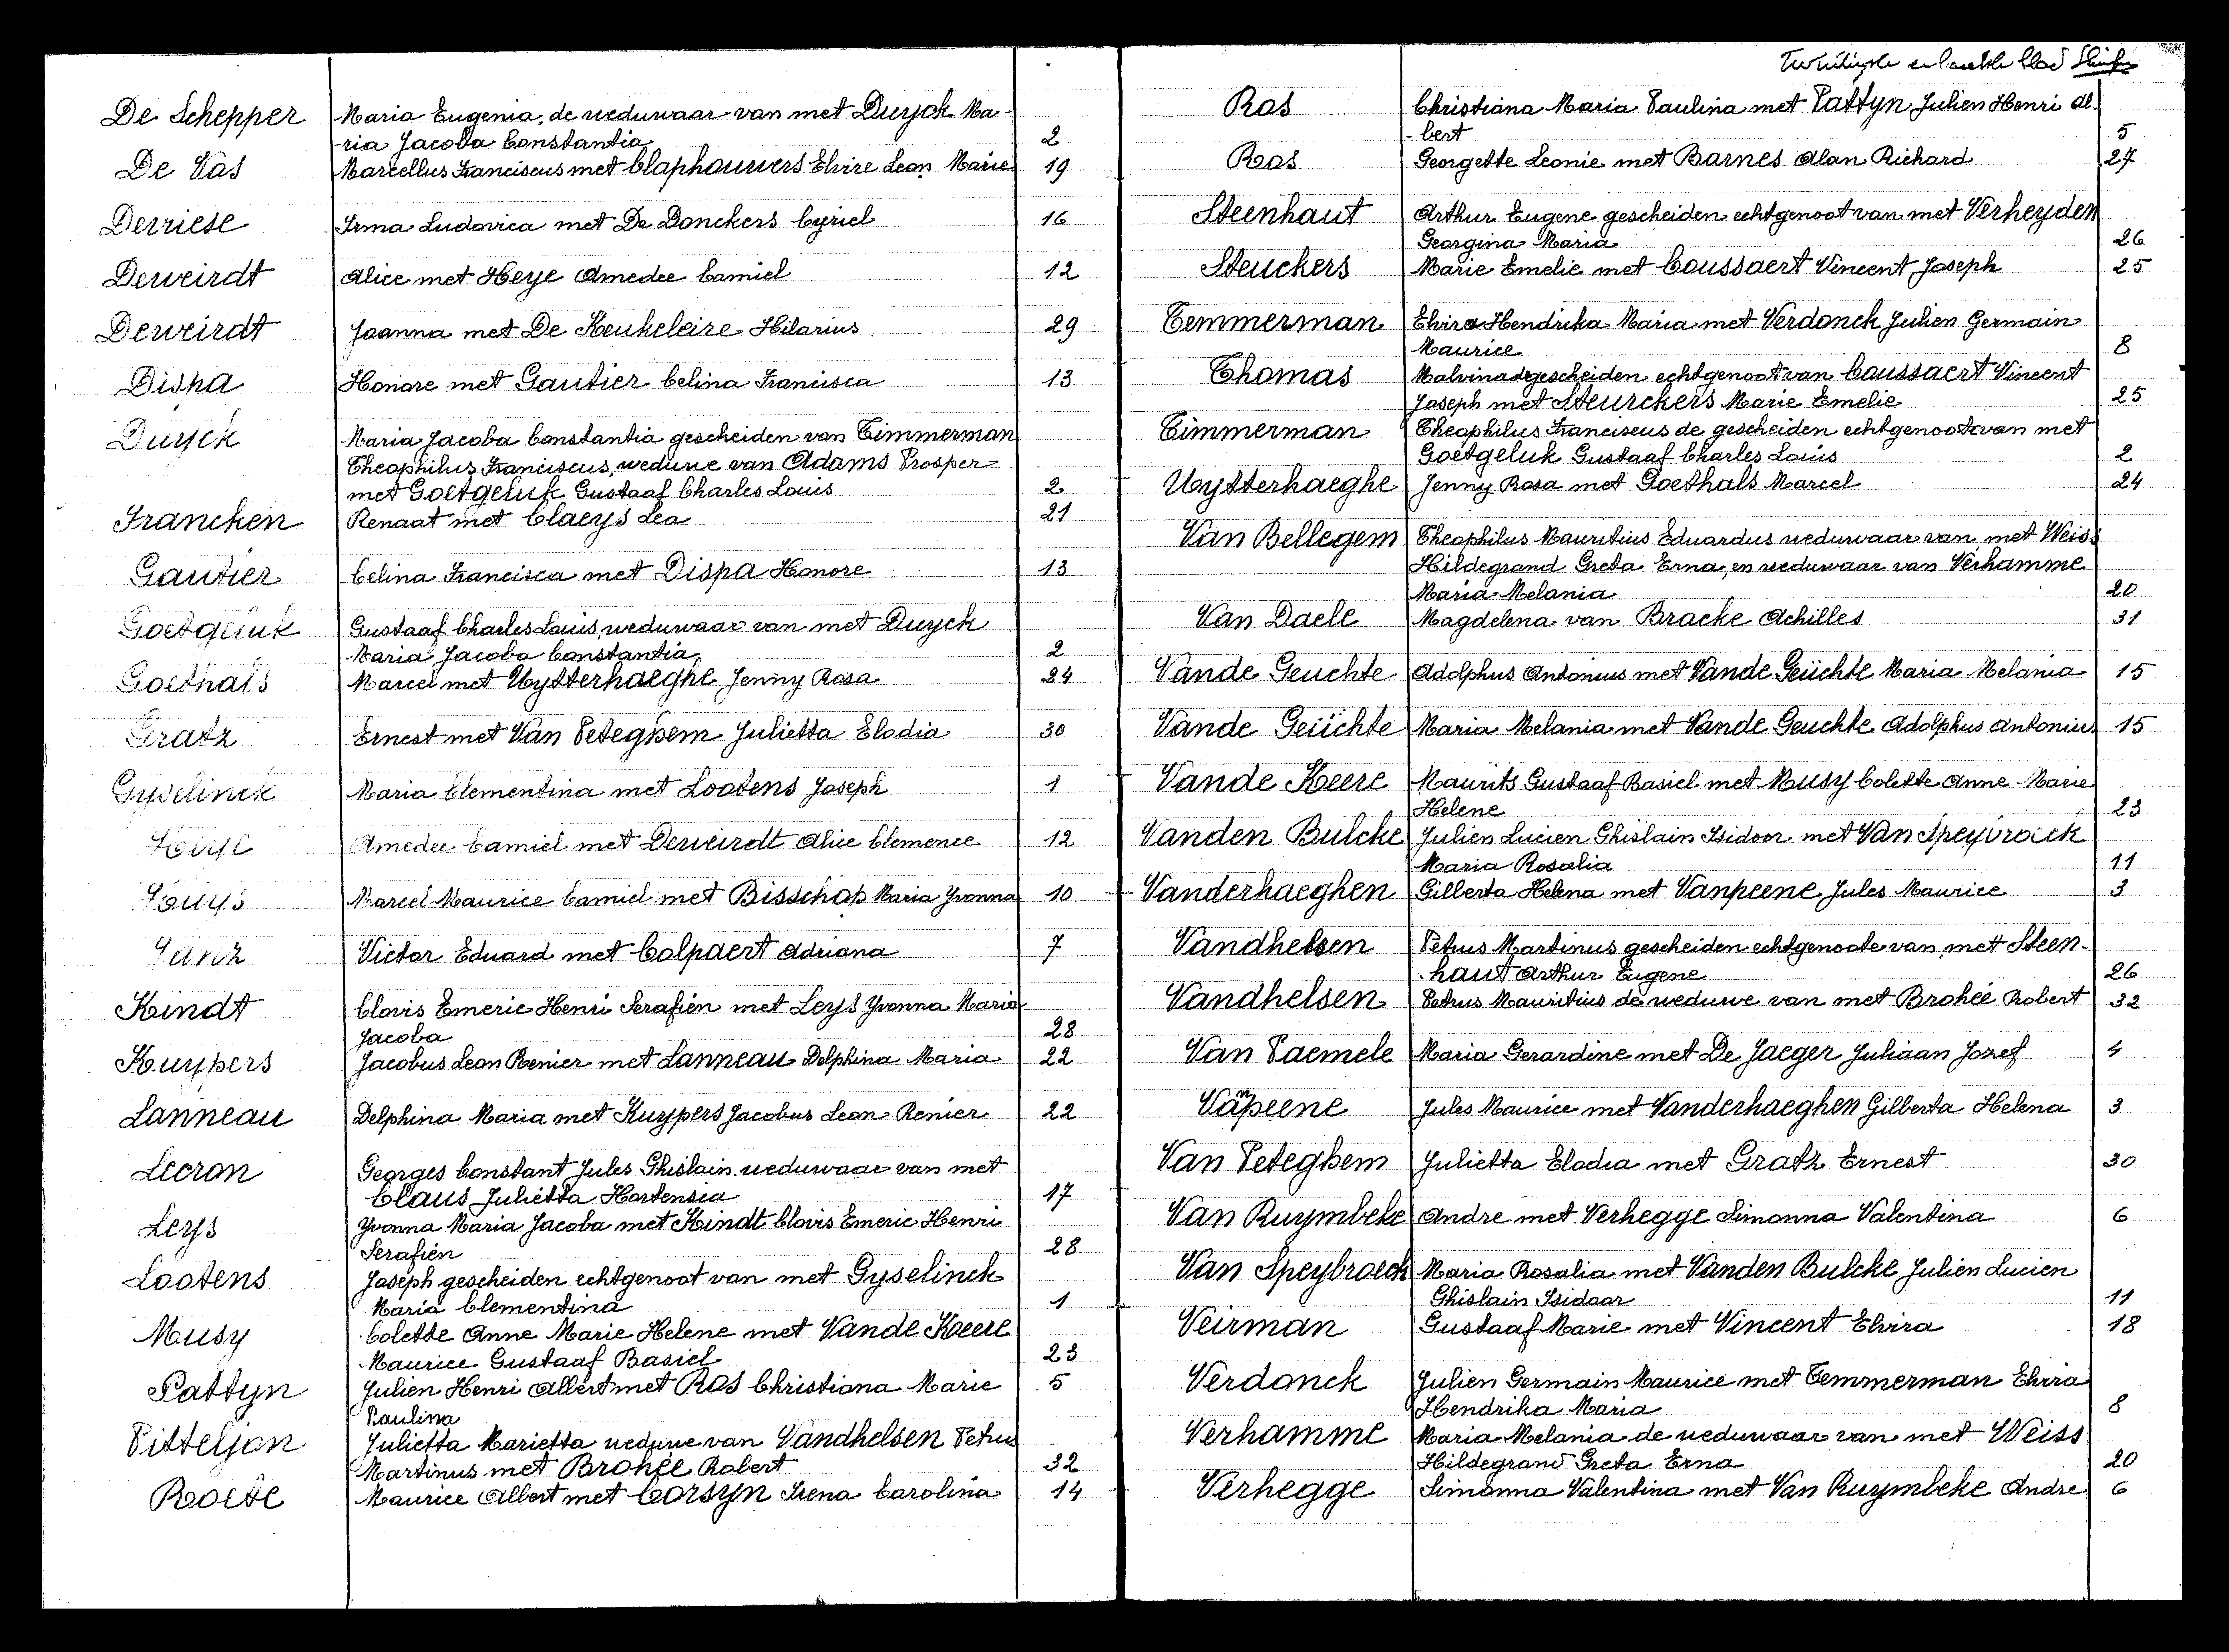 De Schepper Maria Eugenia, de weduwaar van met Duyck Ma-
-ria Jacoba Constantia 2
De Vos Marcellus Franciscus met Claphouwers Elvire Leon Marie 19
Devriese Irma Ludovica met De Donckers Cyriel 16
Deweirdt Alice met Heye Amedee Camiel 12
Deweirdt Joanna met De Keukeleire Hilarius 29
Dispa Honore met Gautier Celina Francisca 13
Duyck Maria Jacoba Constantia gescheiden van Timmerman
Theophilus Franciscus, weduwe van Adams Prosper
met Goetgeluk Gustaaf Charles Louis 2
Francken Renaat met Claeys Lea 21
Gautier Celina Francisca met Dispa Honore 13
Goetgeluk Gustaaf Charles Louis, weduwaar van met Duyck
Maria Jacoba Constantia 2
Goethals Marcel met Uytterhaeghe Jenny Rosa 24
Gratz Ernest met Van Peteghem Julietta Elodia 30
Gyselinck Maria Clementina met Lootens Joseph 1
Heye Amedee Camiel met Deweirdt Alice Clemence 12
Marcel Maurice Camiel met Bisschop Maria Yvonna 10
Victor Eduard met Colpaert Adriana 7
Kindt Clovis Emeric Henri Serafien met Leys Yvonna Maria
Jacoba 28
Kuypers Jacobus Leon Renier met Lanneau Delphina Maria 22
Lanneau Delphina Maria met Kuypers Jacobus Leon Renier 22
Lecron Georges Constant Jules Ghislain weduwaar van met
Claus Julietta Hortensia 17
Leys Yvonna Maria Jacoba met Kindt Clovis Emeric Henri
Serafien 28
Lootens Joseph gescheiden echtgenoot van met Gyselinck
Maria Clementina 1
Musy Colette Anne Marie Helene met Vande Keere
Maurice Gustaaf Basiel 23
Pattyn Julien Henri Albert met Ros Christiana Marie 5
Paulina
Pitteljon Julietta Marietta weduwe van Vandhelsen Petrus
Martinus met Brohée Robert 32
Roete Maurice Albert met Corsyn Irena Carolina 14
blad
Ros Christiana Maria Paulina met Pattyn Julien Henri Al-
-bert 5
Ros Georgette Leonie met Barnes Alan Richard 27
Steenhaut Arthur Eugene gescheiden echtgenoot van met Verheyden
Georgina Maria 26
Steuckers Marie Emelie met Coussaert Vincent Joseph 25
Temmerman Elvira Hendrika Maria met Verdonck Julien Germain
Maurice 8
Thomas Malvina de gescheiden echtgenoot van Coussaert Vincent
Joseph met Steurckers Marie Emelie 25
Timmerman Theophilus Franciscus de gescheiden echtgenoot van met
Goetgeluk Gustaaf Charles Louis 2
Uytterhaeghe Jenny Rosa met Goethals Marcel 24
Van Bellegem Theophilus Mauritius Eduardus weduwaar van met Weiss
Hildegrand Greta Erna, en weduwaar van Verhamme
Maria Melania 20
Van Daele Magdelena van Bracke Achilles 31
Vande Geuchte Adolphus Antonius met Vande Geüchte Maria Melania 15
Vande Geüchte Maria Melania met Vande Geuchte Adolphus Antonius 15
Vande Keere Maurits Gustaaf Basiel met Musy Colette Anne Marie
Helene 23
Vanden Bulcke Julien Lucien Ghislain Isidoor met Van Speybroeck
Maria Rosalia 11
Vanderhaeghen Gilberta Helena met Vanpeene Jules Maurice 3
Vandhelsen Petrus Martinus gescheiden echtgenoote van met Steen-
haut Arthur Eugene 26
Vandhelsen Petrus Mauritius de weduwe van met Brohée Robert 32
Van Paemele Maria Gerardine met De Jaeger Juliaan Jozef 4
Vanpeene Jules Maurice met Vanderhaeghen Gilberta Helena 3
Van Peteghem Julietta Elodia met Gratz Ernest 30
Van Ruymbeke Andre met Verhegge Simonna Valentina 6
Van Speybroeck Maria Rosalia met Vanden Bulcke Julien Lucien
Ghislain Isidoor 11
Veirman Gustaaf Marie met Vincent Elvira 18
Verdonck Julien Germain Maurice met Temmerman Elvira
Hendrika Maria 8
Verhamme Maria Melania de weduwaar van met Weiss
Hildegrand Greta Erna 20
Verhegge Simonna Valentina met Van Ruymbeke Andre 6